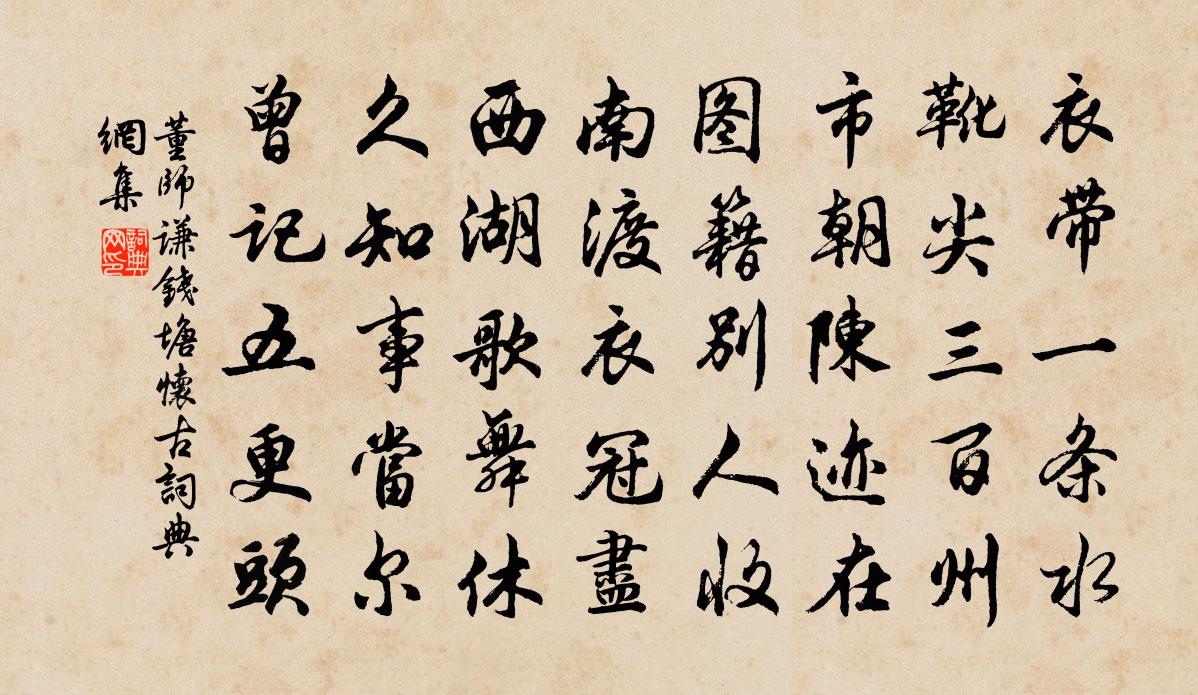 衣带一条水
靴尖三百州
市朝陳迹在
图籍别人收
南渡衣冠盡
西湖歌舞休
久知事當尔
曾记五更頭
董師谦錢塘懷古詞典
網集
詞典
网印